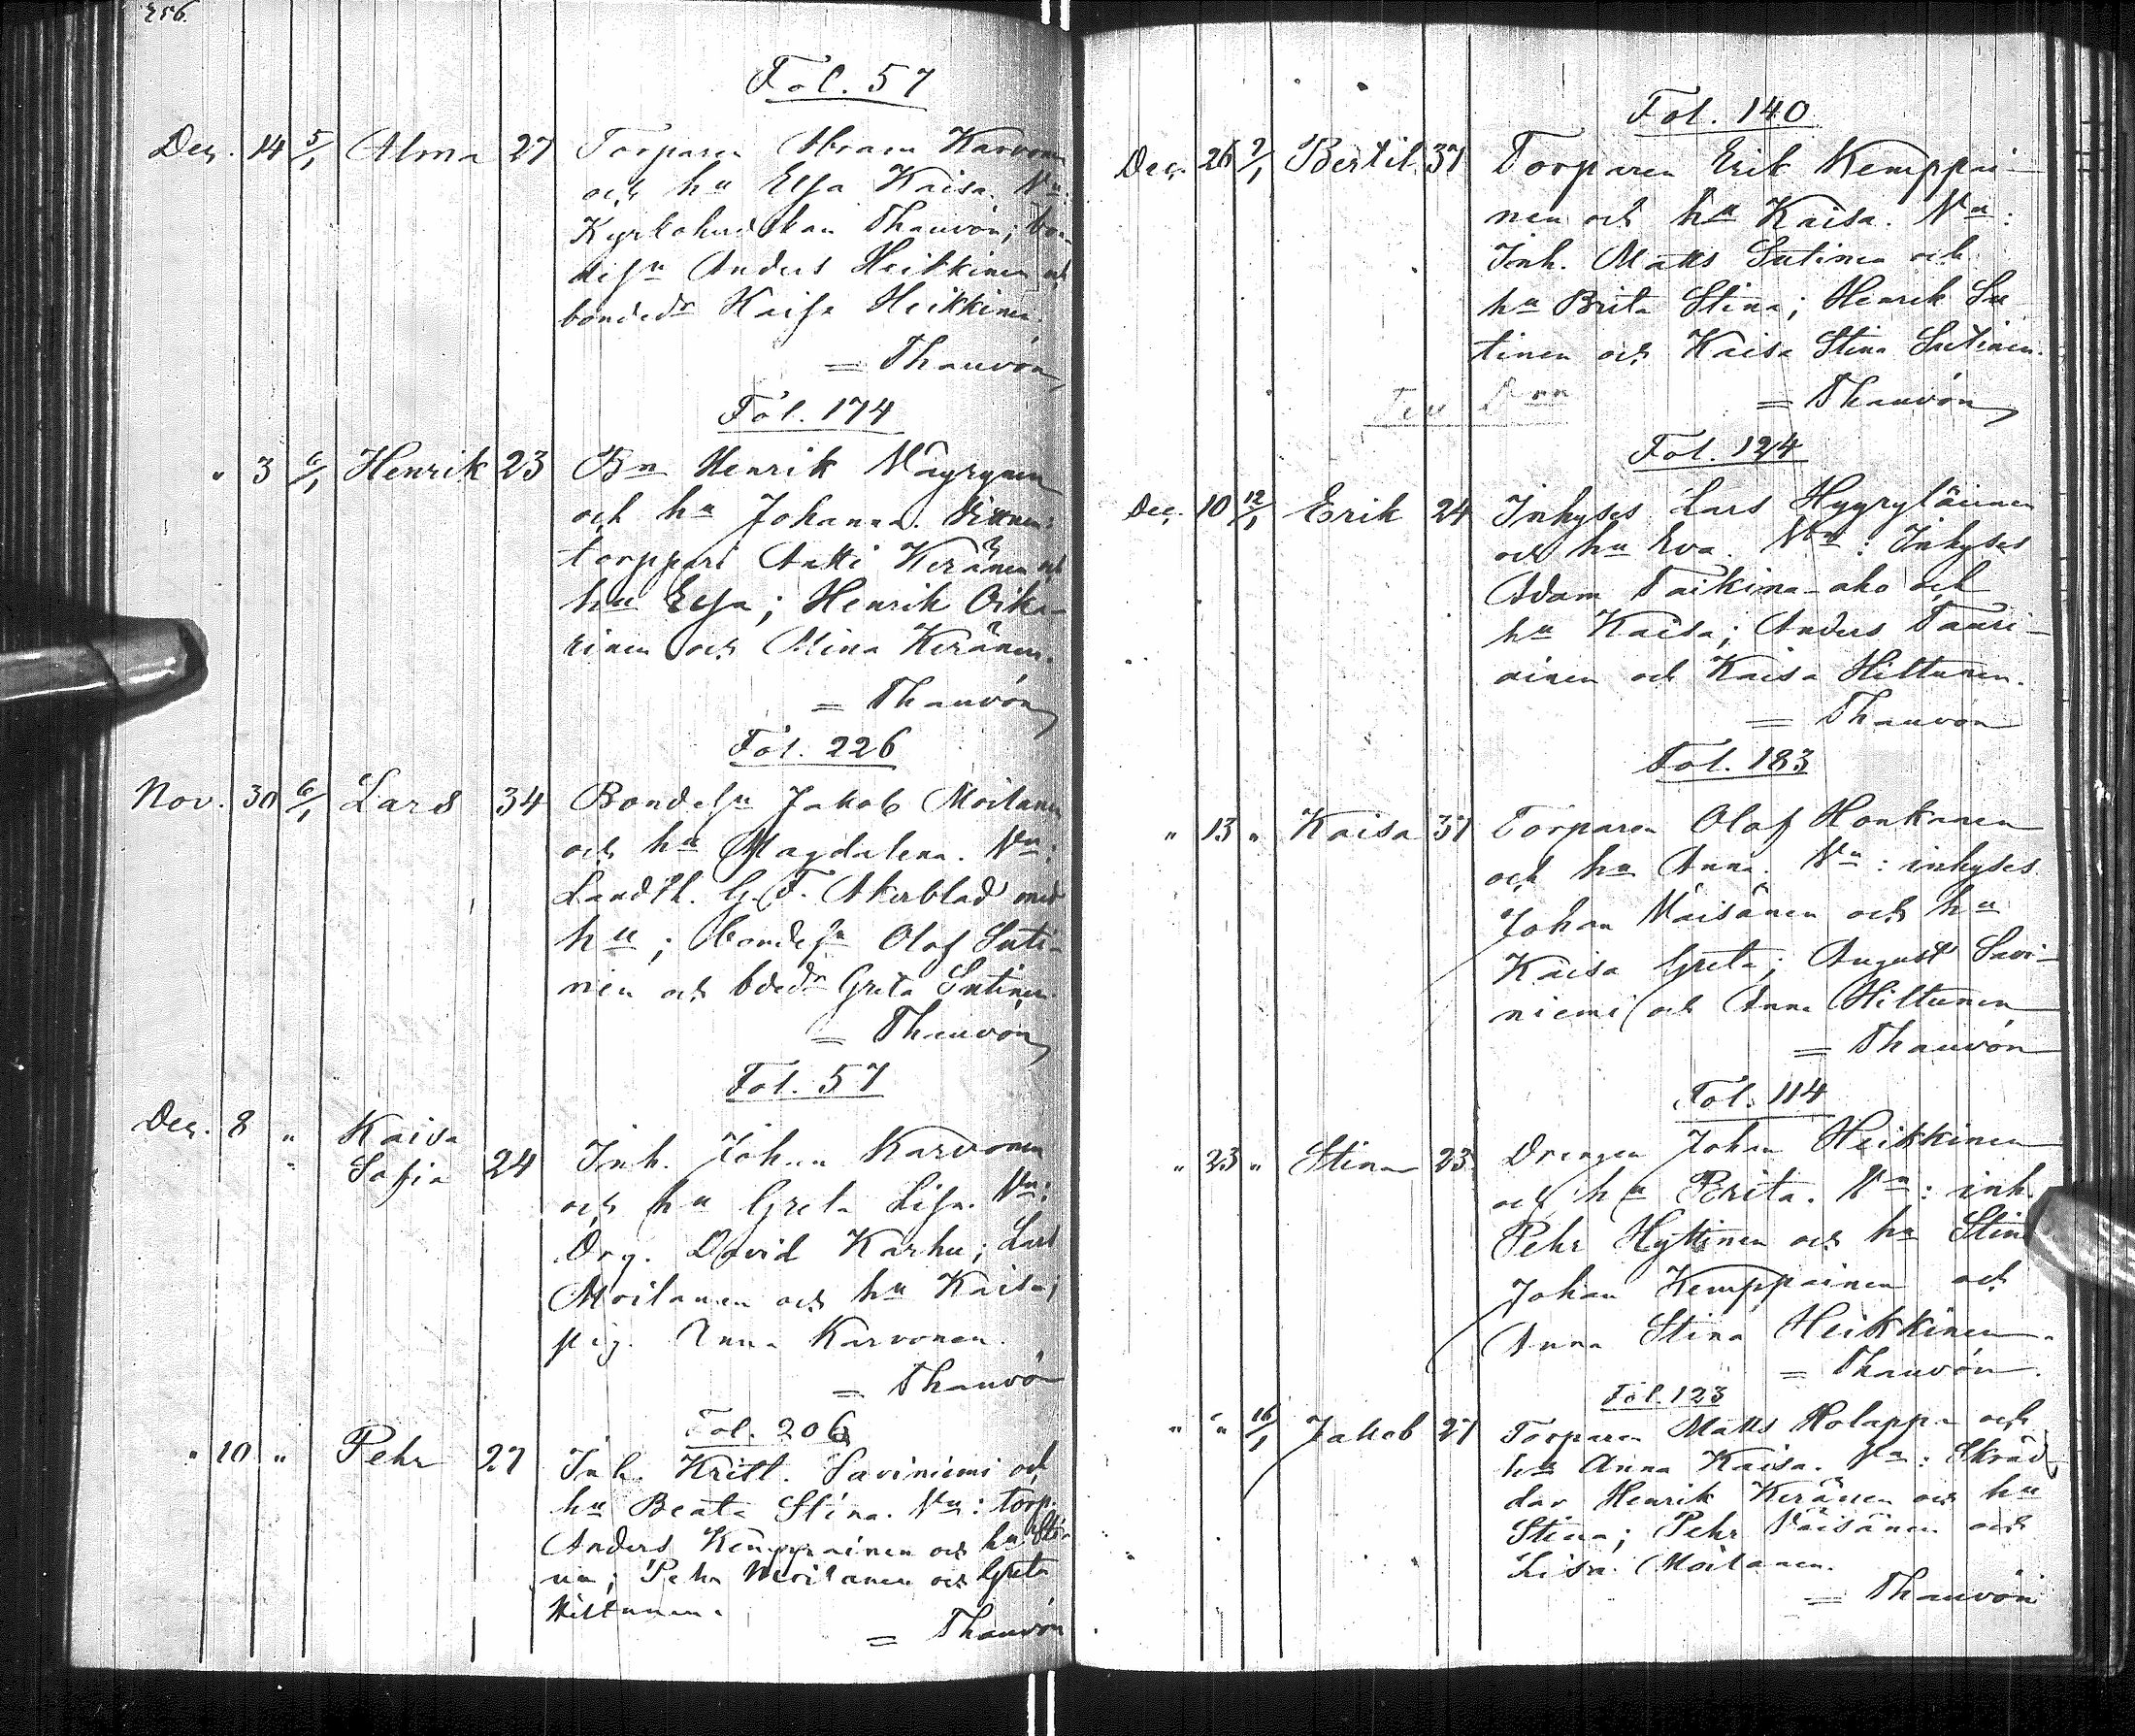 256.
Fol. 57
Dec. 14 5/1 Alma 27 Torparen Abram Karvonen
och hu Elsa Kaisa. Vn:
Kyrkoherdskan Thauvón; bon
desn Anders Heikkinen och
bondedr Kaisa Heikkinen.
= Thauvón
Fol. 174
" 3 6/1 Henrik 23 Bn Henrik Väyrynen
och hu Johanna. Vittnen:
torppari Antti Keränen och
hu Elsa; Henrik Oika-
rinen och Stina Keränen.
= Thauvón
Fol. 226
Nov. 30 6/1 Lars 34 Bondesn Jakob Moilanen
och hu Magdalena. Vn:
Landth. G. F. Åkerblad med
hu; bondesn Olof Suti-
nen och bdedr Greta Sutinen.
= Thauvón
Fol. 57
Dec. 8 " Kaisa
Sofia 24 Inh. Johan Karvonen
och hu Greta Lisa. Vn:
Drg. David Karhu; Lars
Moilanen och hu Kaisa;
pig. Anna Karvonen.
= Thauvón
Fol. 206
" 10 " Pehr 27 Inh. Krist. Saviniemi och
hu Beata Stina. Vn: torp.
Anders Kemppainen och hu Sti-
na; Pehr Moilanen och Greta
Hiltunen.
= Thauvón
Fol. 140
Dec. 26 7/1 Bertil 37 Torparen Erik Kemppai-
nen och hu Kaisa. Vn:
Inh. Matts Sutinen och
hu Brita Stina; Henrik Su
tinen och Kaisa Stina Sutinen.
= Thauvón
Fol. 124
Dec. 10 12/1 Erik 24 Inhyses Lars Hyyryläinen
och hu Eva. Vn: Inhyses
Adam Taikina-aho och
hu Kaisa; Anders Tauri-
ainen och Kaisa Hiltunen.
= Thauvón
Fol. 183
" 13 " Kaisa 37 Torparen Olof Honkanen
och hu Anna. Vn: inhyses
Johan Väisänen och hu
Kaisa Greta; August Savi-
niemi och Anna Hiltunen
= Thauvón
Fol. 114
" 23 " Stina 23 Drengen Johan Heikkinen
och hu Brita. Vn: inh.
Pehr Hyttinen och hu Stina
Johan Kemppainen och
Anna Stina Heikkinen.
= Thauvón.
Fol. 123
" " 16/1 Jakob 27 Torparen Matts Holappa och
hu Anna Kaisa. Vn: Skräd
dar Henrik Keränen och hu
Stina; Pehr Väisänen och
Lisa Moilanen.
= Thauvón